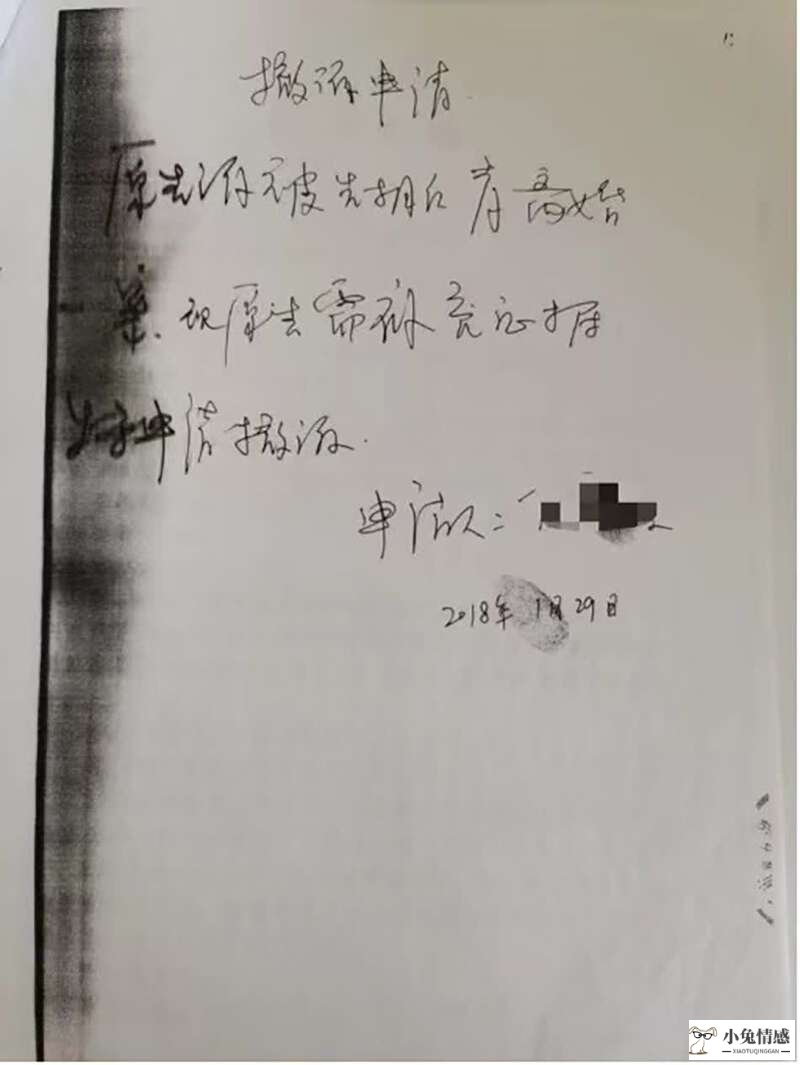 撤诉申请
原告诉被告胡 离婚
案,现原告需补充证据
特申请撤诉.
申请人:
2018年1月29日
小兔情感
XIAOTUQINGGAN